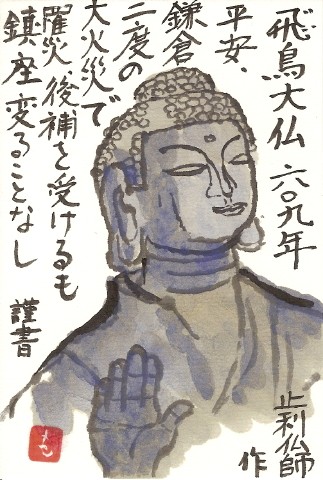 飛鳥大仏 六〇九年
平安、
鎌倉
二度の
大火災で
罹災後補を受けるも
鎮座変ることなし
謹書
止利仏師
作